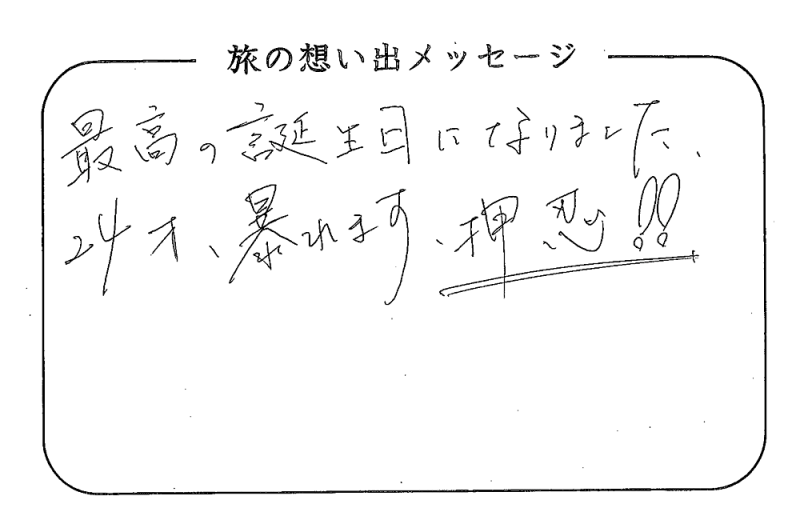 旅の想い出メッセージ
最高の誕生日になりました、
24才、暴れます、押忍!!